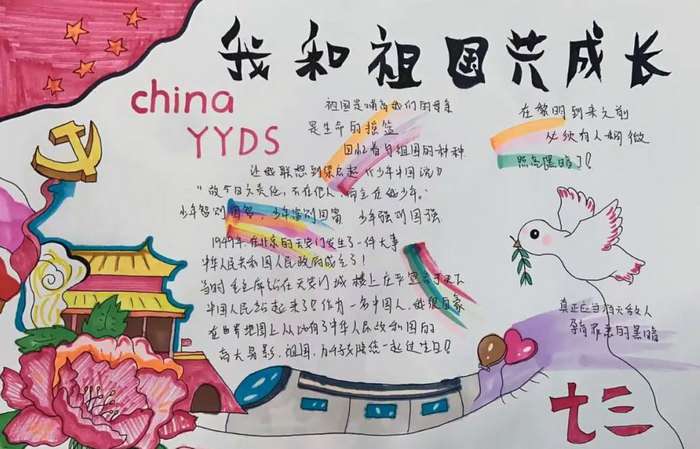 我和祖国共成长
china
YYDS
祖国是哺育我们的母亲
是生命的摇篮
回忆着与祖国的种种
让我联想到梁启超《少年中国说》
"故今日之责任，不在他人，而全在我少年。"
少年智则国智，少年富则国富 少年强则国强
1949年在北京的天安门发生了一件大事
中华人民共和国人民政府成立了！
当时毛主席站在天安门城楼上庄严宣告于天下
中国人民站起来了！作为一名中国人，我很自豪
在世界地图上从此有了中华人民共和国的
高大身影，祖国，万千 一起过生日！
在黎明到来之前
必须有人稍微
照亮黑暗了！
真正应当
的黑暗
七三